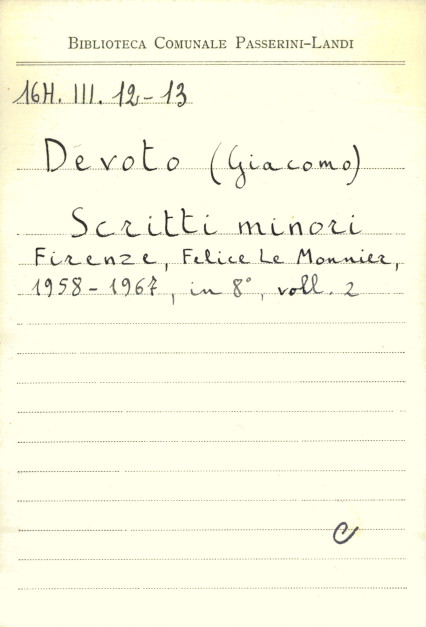 BIBLIOTECA COMUNALE PASSERINI-LANDI
16H. III. 12-13
Devoto (Giacomo)
Scritti minori
Firenze, Felice Le Monnier,
1958-1967, in 8°, voll. 2
C